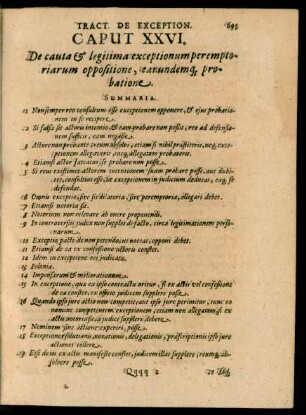 TRACT. DE EXCEPTION. 695
CAPUT XXVI.
De cauta & legitima exceptionum perempto-
riarum oppositione, earundemq, pro-
batione.
SUMMARIA.
1 Non semper reo consultum esse exceptionem opponere, & ejus probatio-
nem in se recipere.
2 Si falsa sit actoris intentio, & eam probare non possit, reo ad defensio-
nem sufficit, eam negasse.
3 Actore non probante reum absolvi, etiamsi nihil præstiterit, neq, exce-
ptionem allegaverit aut allegatam probaverit.
4 Etiamsi actor fateatur se probare non posse.
5 Si reus existimet actorem intentionem suam probare posse, aut dubi-
tet, consultius esse, ut exceptionem in judicium deducat, eaq, se
defendat.
6 Omnis exceptio, sive sit dilatoria, sive peremptoria, allegari debet.
7 Etiamsi notoria sit.
8 Notorium non relevare ab onere proponendi.
9 In controversia judex non supplet de facto, circa legitimationem perso-
narum.
10 Exceptio pacti de non petendo, ut noceat, opponi debet.
11 Etiamsi de ea ex confessione actoris constet.
12 Idem in exceptione rei judicatæ.
13 Solutio.
14 Impensarum & meliorationum.
15 In exceptione, quæ ex ipso contractu oritur, si ex actis vel confessione
de ea constet, ex officio judicem supplere posse.
16 Quando ipso jure actio non competit, aut ipso jure perimitur, tunc eo
nomine competentem exceptionem, etiam non allegatam, si ex
actis notorie, id judex supplere debere.
17 Neminem sine actione experiri posse.
18 Exceptione solutionis, novationis, delegationis, præscriptionis ipso jure
actionem tollere.
19 Et si de iis ex actis manifeste constet, judicem illas supplere, reumq, ab-
solvere posse.
Qqqq 2